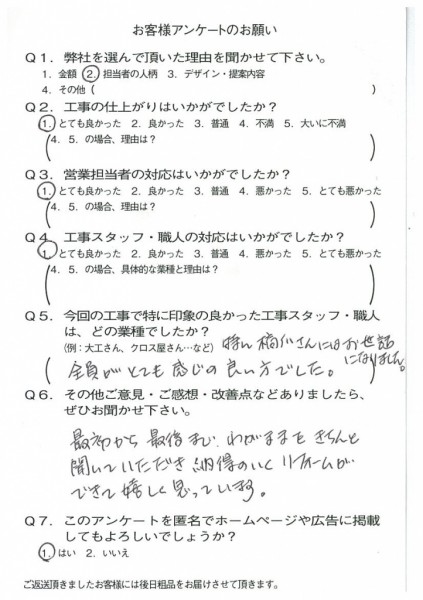 お客様アンケートのお願い
Q1．弊社を選んで頂いた理由を聞かせて下さい。
1．金額 2．担当者の人柄 3．デザイン・提案内容
4．その他（ ）
Q2．工事の仕上がりはいかがでしたか？
1．とても良かった 2．良かった 3．普通 4．不満 5．大いに不満
（4．5．の場合、理由は？ ）
Q3．営業担当者の対応はいかがでしたか？
1．とても良かった 2．良かった 3．普通 4．悪かった 5．とても悪かった
（4．5．の場合、理由は？ ）
Q4．工事スタッフ・職人の対応はいかがでしたか？
1．とても良かった 2．良かった 3．普通 4．悪かった 5．とても悪かった
（4．5．の場合、具体的な業種と理由は？ ）
Q5．今回の工事で特に印象の良かった工事スタッフ・職人
は、どの業種でしたか？
（例：大工さん、クロス屋さん…など）
特に さんにはお世話
になりました。
全員がとても感じの良い方でした。
Q6．その他ご意見・ご感想・改善点などありましたら、
ぜひお聞かせ下さい。
最初から最後まで、わがままをきちんと
聞いていただき納得のいくリフォームが
できて嬉しく思っています。
Q7．このアンケートを匿名でホームページや広告に掲載
してもよろしいでしょうか？
1．はい 2．いいえ
ご返送頂きましたお客様には後日粗品をお届けさせて頂きます。